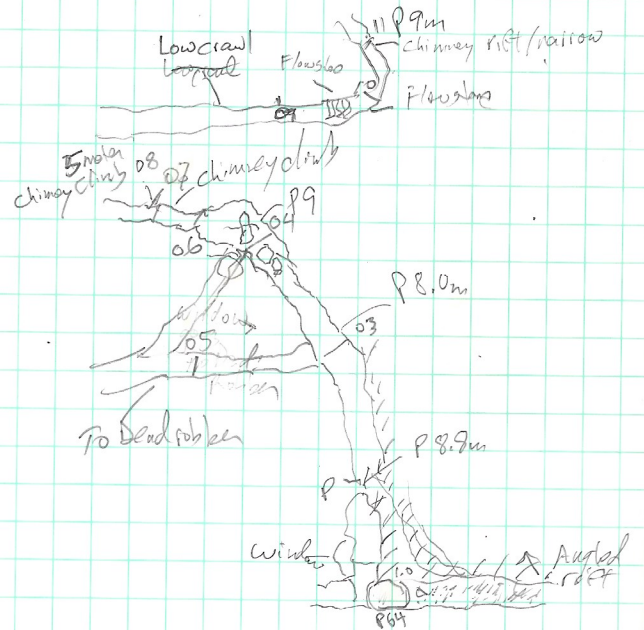 11 P9m
chimney rift/narrow
Low crawl
Flowstone
Flowstone
09
5 meter
chimney climb
08
07 chimney climb
P9
04
06
P 8.0m
03
window
05
1
To Dead robber
P 8.8m
P
window
Angled
rift
1.0
P64